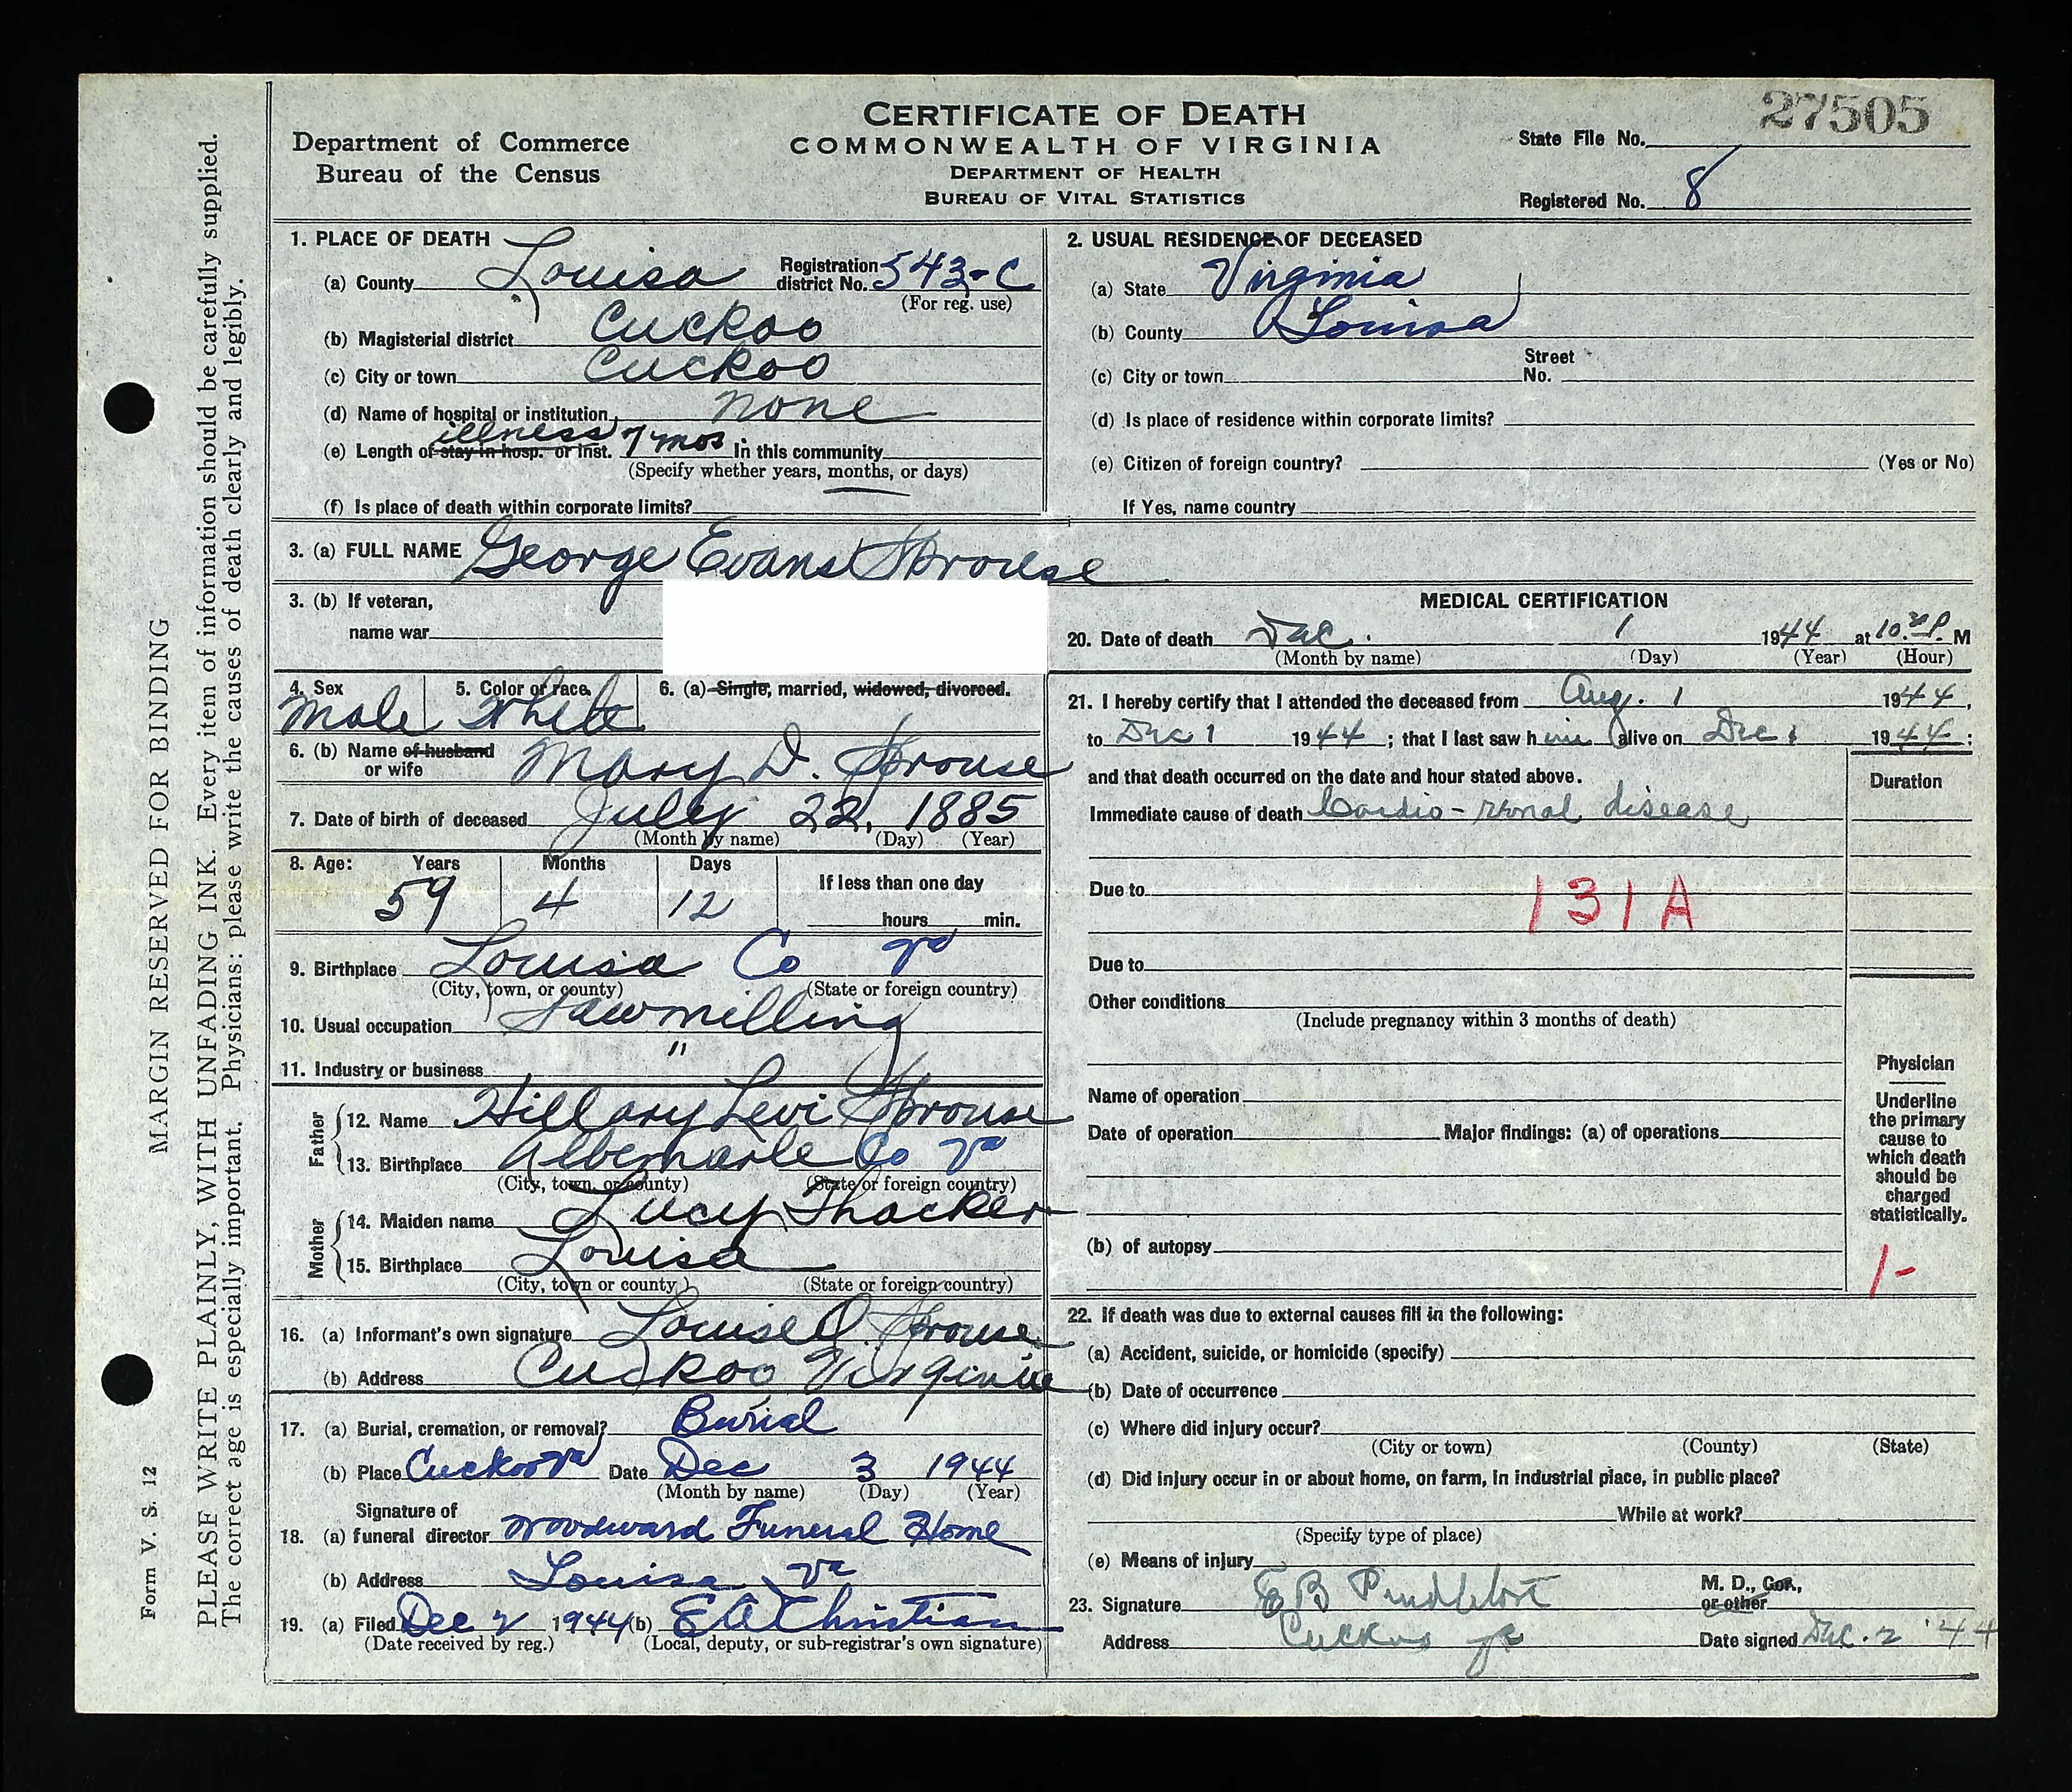 CERTIFICATE OF DEATH
COMMONWEALTH OF VIRGINIA
DEPARTMENT OF HEALTH
BUREAU OF VITAL STATISTICS
Department of Commerce
Bureau of the Census
State File No. 27505
Registered No. 8
MARGIN RESERVED FOR BINDING
PLEASE WRITE PLAINLY, WITH UNFADING INK. Every item of information should be carefully supplied.
The correct age is especially important. Physicians: please write the causes of death clearly and legibly.
Form V. S. 12
1. PLACE OF DEATH
(a) County Louisa Registration district No. 543-C
(For reg. use)
(b) Magisterial district Cuckoo
(c) City or town Cuckoo
(d) Name of hospital or institution none
illness
(e) Length of stay in hosp. or inst. 7 mos. In this community
(Specify whether years, months, or days)
(f) Is place of death within corporate limits?
2. USUAL RESIDENCE OF DECEASED
(a) State Virginia
(b) County Louisa
(c) City or town Street No.
(d) Is place of residence within corporate limits?
(e) Citizen of foreign country? (Yes or No)
If Yes, name country
3. (a) FULL NAME George Evans Sprouse
3. (b) If veteran,
name war
4. Sex 5. Color or race 6. (a) Single, married, widowed, divorced.
Male White
6. (b) Name of husband
or wife Mary D. Sprouse
7. Date of birth of deceased July 22, 1885
(Month by name) (Day) (Year)
8. Age: Years Months Days If less than one day
59 4 12 hours min.
9. Birthplace Louisa Co Va
(City, town, or county) (State or foreign country)
10. Usual occupation Sawmilling
11. Industry or business "
Father
12. Name Hillary Levi Sprouse
13. Birthplace Albemarle Co Va
(City, town, or county) (State or foreign country)
Mother
14. Maiden name Lucy Thacker
15. Birthplace Louisa
(City, town or county) (State or foreign country)
16. (a) Informant's own signature Louise O. Sprouse
(b) Address Cuckoo Virginia
17. (a) Burial, cremation, or removal? Burial
(b) Place Cuckoo Va Date Dec 3 1944
(Month by name) (Day) (Year)
Signature of
18. (a) funeral director Woodward Funeral Home
(b) Address Louisa Va
19. (a) Filed Dec 2 1944 (b) E A Christian
(Date received by reg.) (Local, deputy, or sub-registrar's own signature)
MEDICAL CERTIFICATION
20. Date of death Dec. 1 1944 at 10.30 P. M
(Month by name) (Day) (Year) (Hour)
21. I hereby certify that I attended the deceased from Aug. 1 1944,
to Dec 1 1944; that I last saw him alive on Dec 1 1944;
and that death occurred on the date and hour stated above.
Duration
Immediate cause of death Cardio-renal disease
Due to
131A
Due to
Other conditions
(Include pregnancy within 3 months of death)
Name of operation
Date of operation Major findings: (a) of operations
(b) of autopsy
Physician
Underline
the primary
cause to
which death
should be
charged
statistically.
1-
22. If death was due to external causes fill in the following:
(a) Accident, suicide, or homicide (specify)
(b) Date of occurrence
(c) Where did injury occur?
(City or town) (County) (State)
(d) Did injury occur in or about home, on farm, in industrial place, in public place?
While at work?
(Specify type of place)
(e) Means of injury
23. Signature E B Pendleton M. D., Cor., or other
Address Cuckoo Va Date signed Dec. 2 '44